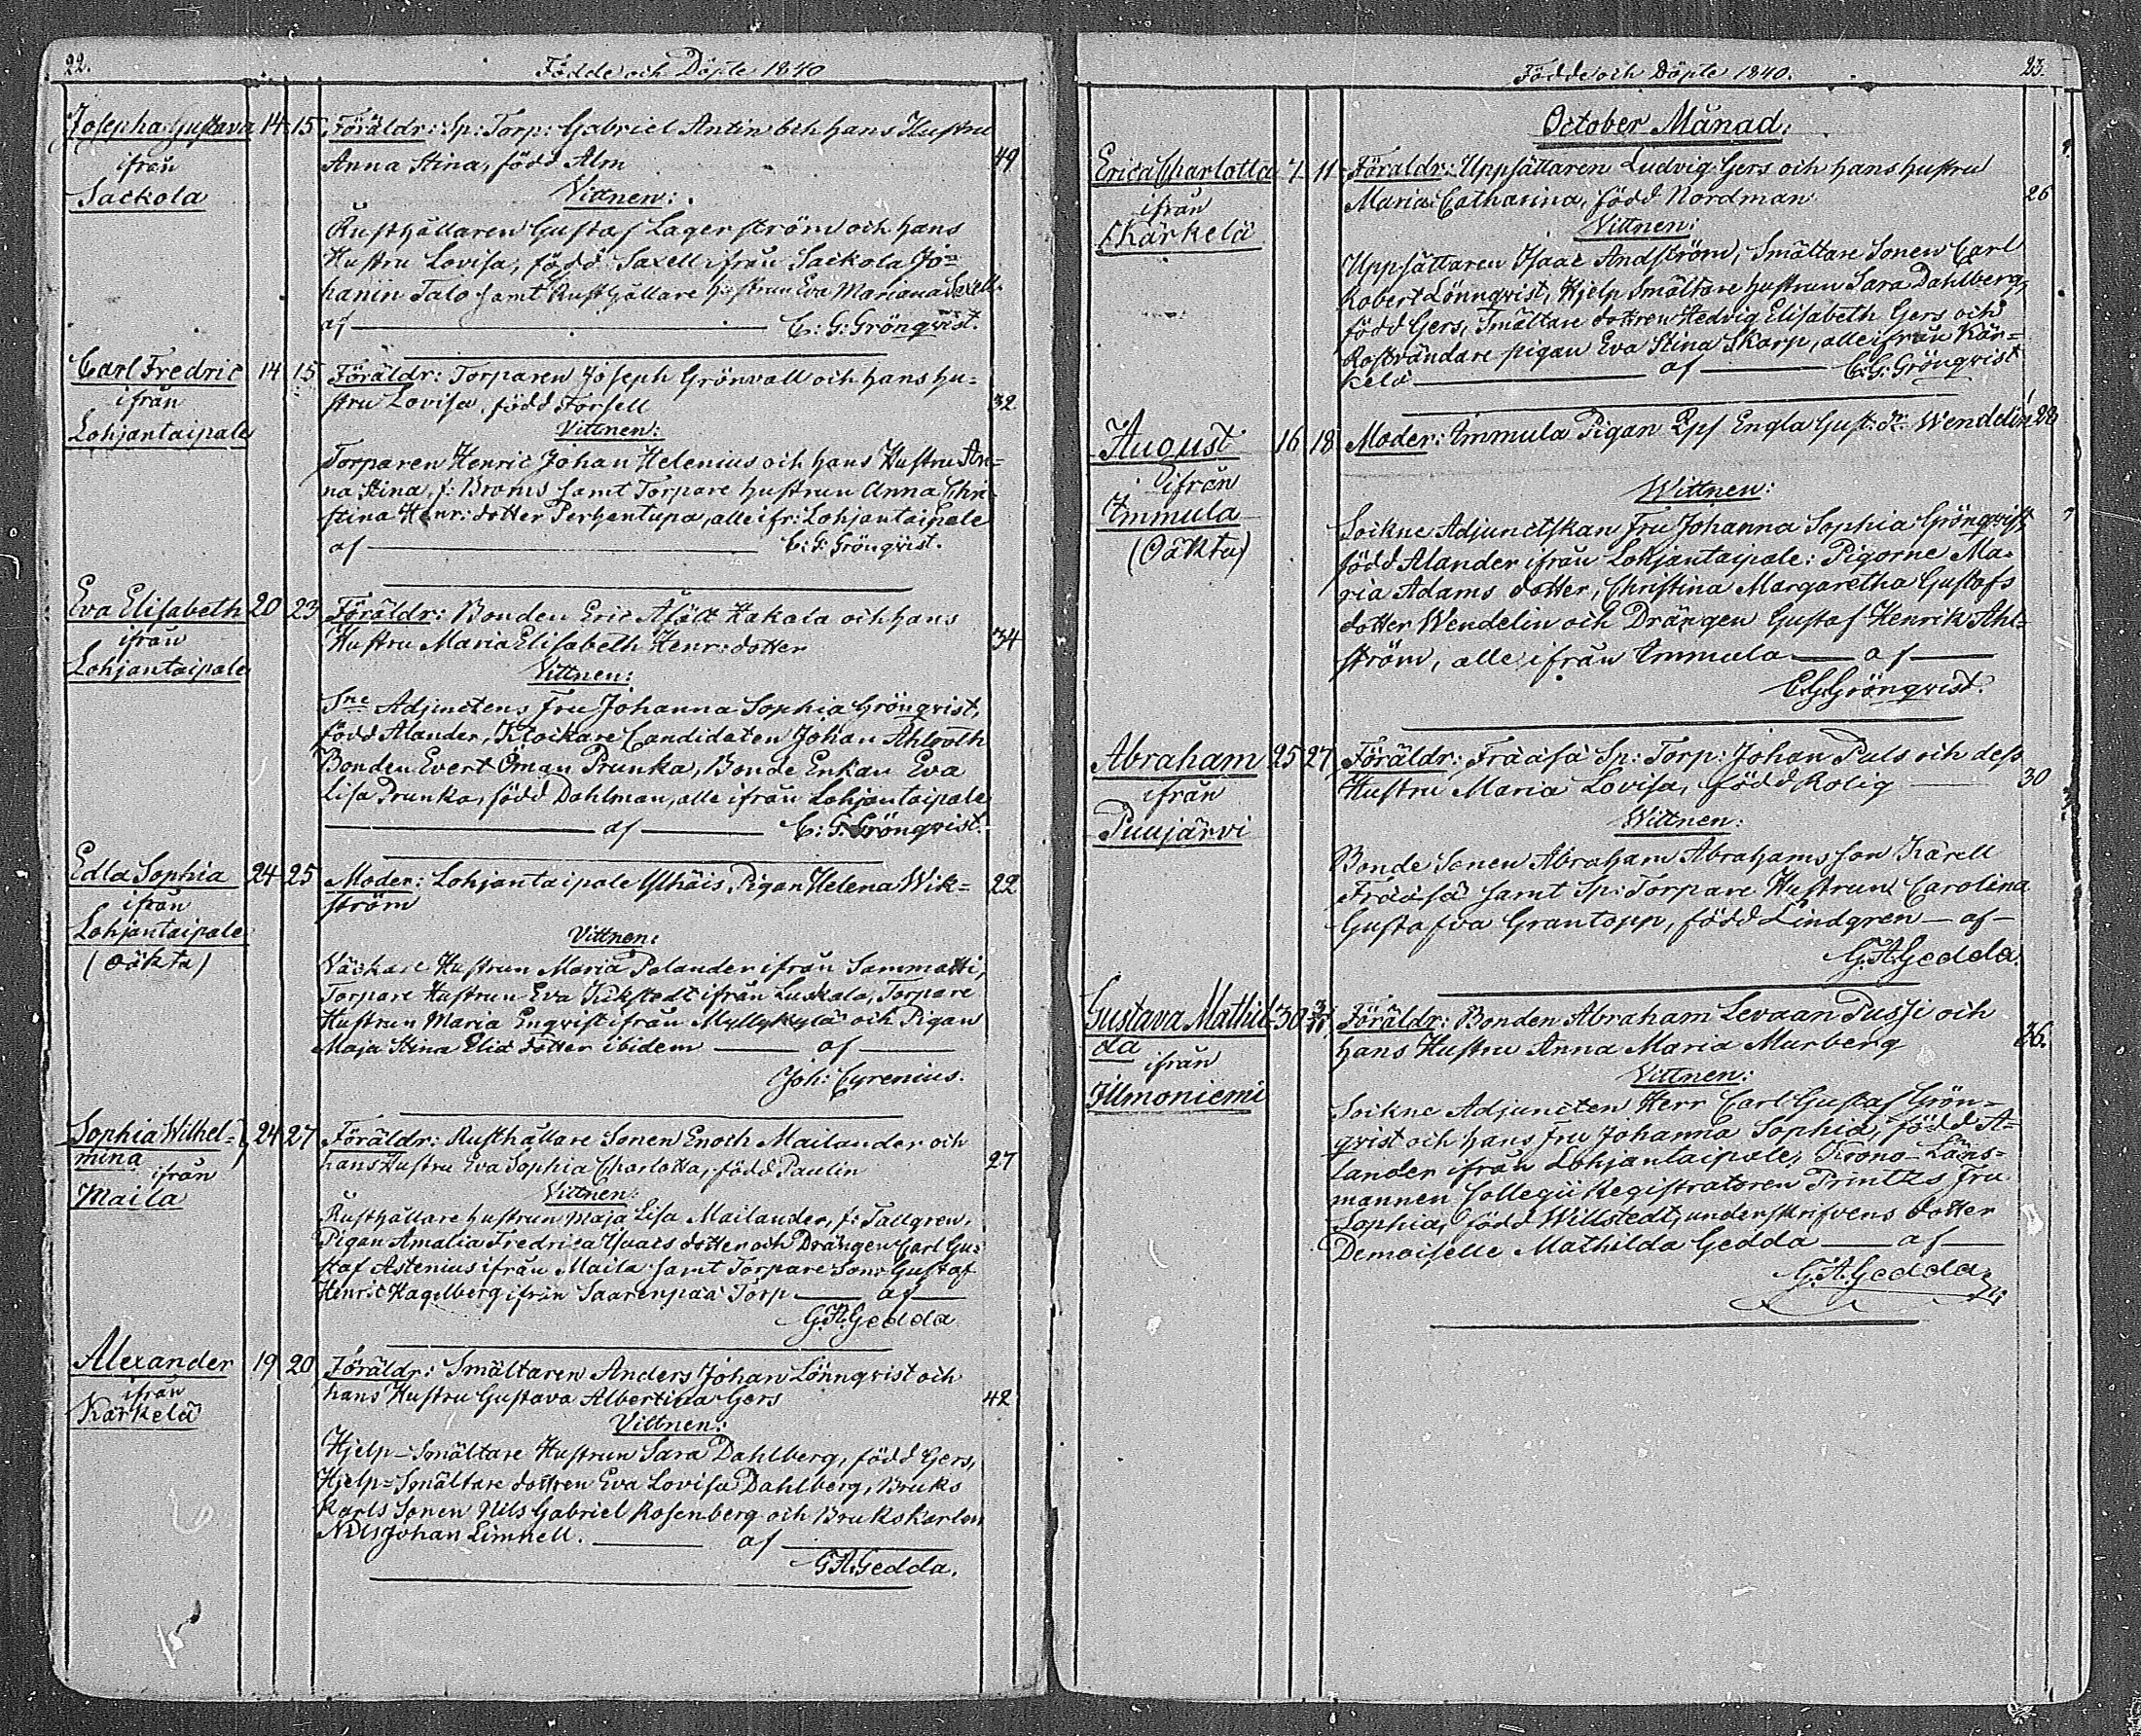 22.
Födde och Döpte 1840
Josepha Gustava 14 15 Föräldr: Sp: Torp: Gabriel Antin och hans Hustru
ifrån Anna Stina, född Alm 49
Sackola Vittnen:
Rusthållaren Gustaf Lagerström och hans
Hustru Lovisa, född Saxell ifrån Sackola Jo=
hanin Talo samt Rusthållare hustrun Eva Mariana Saxell.
af C: G: Grönqvist.
Carl Fredric 14 15 Föräldr: Torparen Joseph Grönvall och hans hu=
ifrån stru Lovisa, född Forsell 32
Lohjantaipale Vittnen:
Torparen Henric Johan Helenius och hans Hustru An=
na Stina, f: Broms samt Torpare hustrun Anna Chri
stina Henr: dotter Perhentupa, alle ifr: Lohjantaipale
af C: G: Grönqvist.
Eva Elisabeth 20 23 Föräldr: Bonden Eric Afält Hakala och hans
ifrån Hustru Maria Elisabeth Henr: dotter 34
Lohjantaipale Vittnen:
Sne Adjunctens Fru Johanna Sophia Grönqvist,
född Alander, Klockare Candidaten Johan Ahlroth
Bonden Evert Öman Prunka, Bonde Enkan Eva
Lisa Prunka, född Dahlman, alle ifrån Lohjantaipale
af C: G: Grönqvist.
Edla Sophia 24 25 Moder: Lohjantaipale Ylhäis, Pigan Helena Wik= 22
ifrån ström
Lohjantaipale Vittnen:
(oäkta) Väckare Hustrun Maria Palander ifrån Sammatti,
Torpare Hustrun Eva Kickstedt ifrån Luskala, Torpare
Hustrun Maria Enqvist ifrån Myllykylä och Pigan
Maja Stina Elia dotter ibidem af
Joh: Cyrenius.
Sophia Wilhel= 24 27 Föräldr: Rusthållare Sonen Enoch Mailander och
mina ifrån hans Hustru Eva Sophia Charlotta, född Paulin 27
Maila Vittnen:
Rusthållare hustrun Maja Lisa Mailander, f: Tallgren,
Pigan Amalia Fredrica Isaacs dotter och Drängen Carl Gu=
staf Astenius ifrån Maila samt Torpare Sonen Gustaf
Henric Hagelberg ifrån Saarenpää Torp af
G. A. Gedda
Alexander 19 20 Föräldr: Smältaren Anders Johan Lönnqvist och
ifrån hans Hustru Gustava Albertina Gers 42
Kärkelä Vittnen:
Hjelp-Smältare Hustrun Sara Dahlberg, född Gers,
Hjelp=Smältare dottren Eva Lovisa Dahlberg, Bruks
Karls Sonen Nils Gabriel Rosenberg och Brukskarlen
Nils Johan Limnell. af
G. A. Gedda.
Födde och Döpte 1840.
23.
October Månad:
Erica Charlotta 7 11 Föräldr: Uppsättaren Ludvig Gers och hans hustru
ifrån Maria Catharina, född Nordman 26
Kärkelä Vittnen:
Uppsättaren Isaac Andström, Smältare Sonen Carl
Robert Lönnqvist, Hjelp Smältare hustrun Sara Dahlberg,
född Gers, Smältare dottren Hedvig Elisabeth Gers och
Rostvändare pigan Eva Stina Skarp, alle ifrån Kär=
kelä af C: G: Grönqvist
August 16 18 Moder: Immula Pigan Engla Gust: dr Wendelin 28
ifrån
Immula
(Oäkta)
Wittnen:
Sockne Adjunctskan Fru Johanna Sophia Grönqvist,
född Alander ifrån Lohjantaipale: Pigorne Ma=
ria Adams dotter, Christina Margaretha Gustafs
dotter Wendelin och Drängen Gustaf Henrik Ahl=
ström, alle ifrån Immula af
C. G. Grönqvist.
Abraham 25 27 Föräldr: Frääsä Sp: Torp: Johan Puls och dess
ifrån Hustru Maria Lovisa, född Rolig 30
Puujärvi Wittnen:
Bonde Sonen Abraham Abrahamsson Karell
Frääsä samt Sp: Torpare Hustrun Carolina
Gustafva Grantopp, född Lindgren af
G. A. Gedda.
Gustava Mathil= 30 Föräldr: Bonden Abraham Levaan Pussi och
da ifrån hans Hustru Anna Maria Murberg 36.
Illmoniemi Vittnen:
Sockne Adjuncten Herr Carl Gustaf Grön=
qvist och hans Fru Johanna Sophia, född A=
lander ifrån Lohjantaipale, Krono-Läns=
mannen Collegii Registratoren Printtz Fru
Sophia, född Willstedt, underskrifvens dotter
Demoiselle Mathilda Gedda af
G. A. Gedda